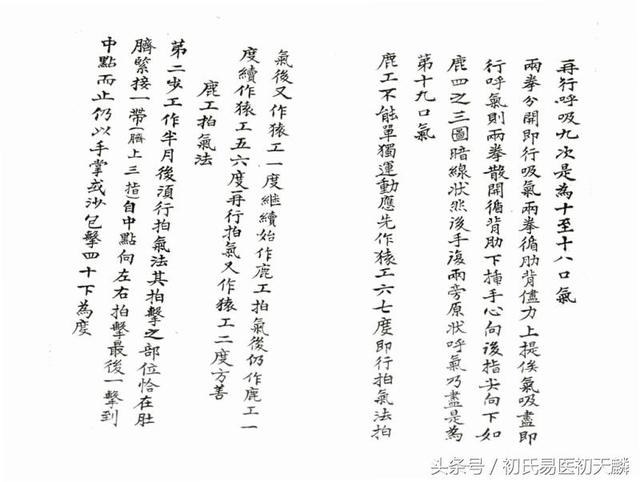 再行呼吸九次是為十至十八口氣
兩拳分開即行吸氣兩拳循肋背儘力上提俟氣吸盡即
行呼氣則兩拳散開循背肋下㨪手心向後指尖向下如
鹿四之三圖暗線狀然後手復兩旁原狀呼氣乃盡是為
第十九口氣
鹿工不能單獨運動應先作猿工六七度即行拍氣法拍
氣後又作猿工一度繼續始作鹿工拍氣後仍作鹿工一
度續作猿工五六度再行拍氣又作猿工二度方善
鹿工拍氣法
第二步工作半月後須行拍氣法其拍擊之部位恰在肚
臍緊接一帶(臍上三指)自中點向左右拍擊最後一擊到
中點而止仍以手掌或沙包擊四十下為度
头条号／初氏易医初天麟